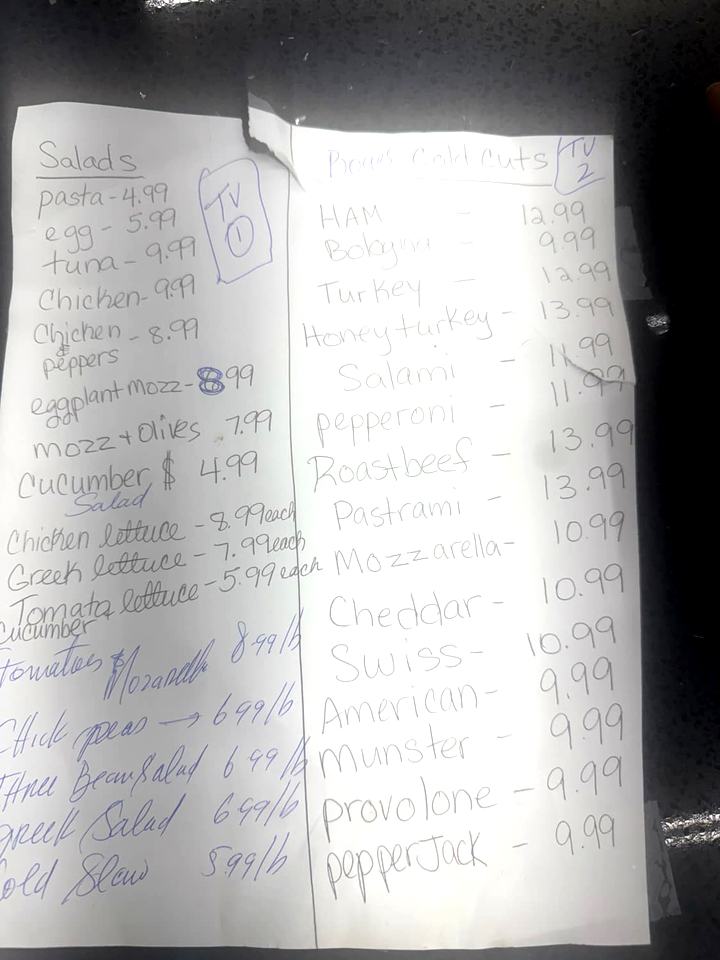 Salads
TV
1
pasta - 4.99
egg - 5.99
tuna - 9.99
Chicken - 9.99
Chicken - 8.99
&
peppers
eggplant mozz - 8.99
mozz + Olives 7.99
Cucumber $ 4.99
Salad
Chicken lettuce - 8.99 each
Greek lettuce - 7.99 each
Tomato lettuce - 5.99 each
Cucumber
Tomatoes & Mozarella 8 99/lb
Chick peas → 6 99/lb
Three Bean Salad 6 99/lb
Greek Salad 6 99/lb
Cold Slaw 5.99/lb
Cold Cuts
TV
2
HAM - 12.99
Bologna - 9.99
Turkey - 12.99
Honey turkey - 13.99
Salami - 11.99
pepperoni - 11.99
Roastbeef - 13.99
Pastrami - 13.99
Mozzarella - 10.99
Cheddar - 10.99
Swiss - 10.99
American - 9.99
Munster - 9.99
provolone - 9.99
pepperJack - 9.99